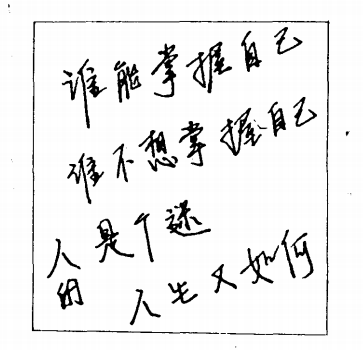 谁能掌握自己
谁不想掌握自己
人是个谜
的人生又如何